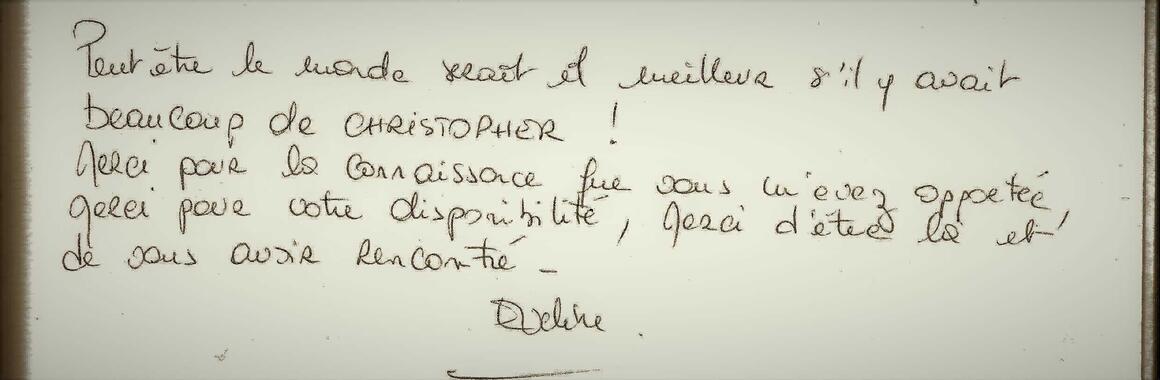 Peut être le monde serait il meilleur s'il y avait
beaucoup de CHRISTOPHER !
Merci pour la connaissance que vous m'avez apportée,
Merci pour votre disponibilité, Merci d'être là et
de vous avoir rencontré -